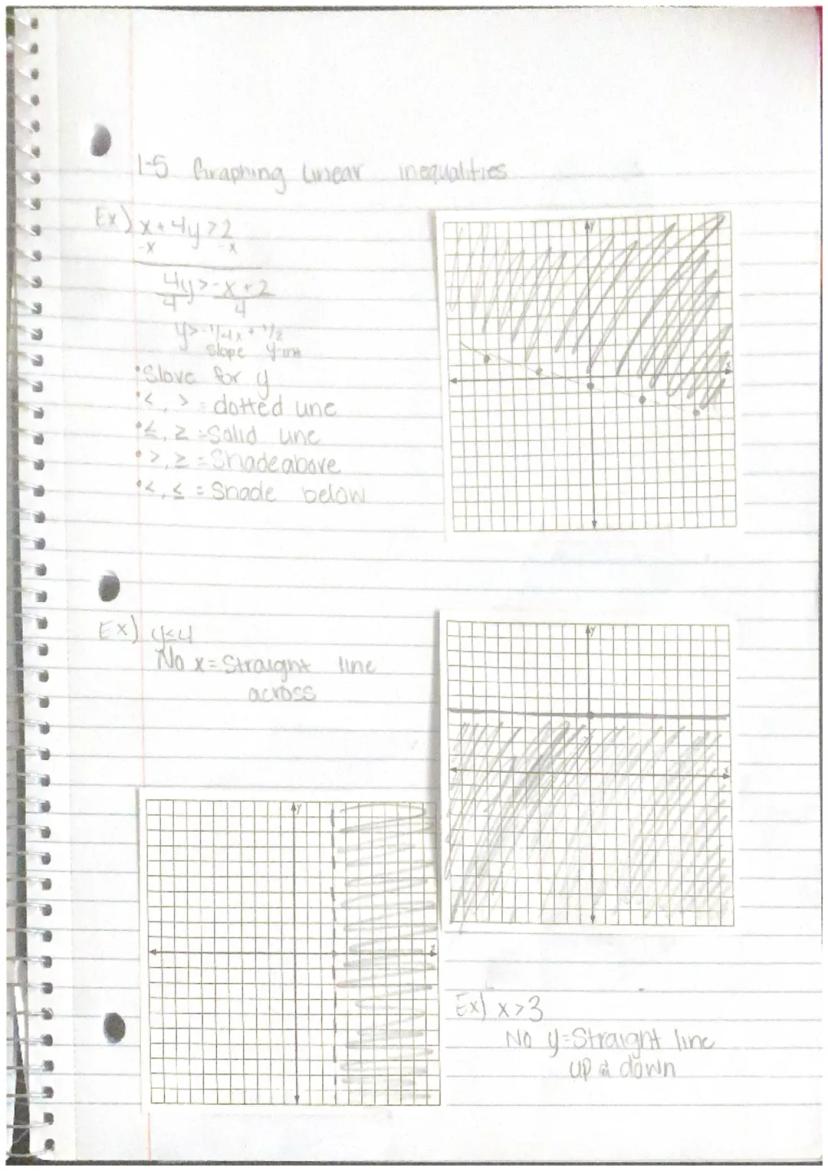 1-5 Graphing Linear inequalities
Ex) x + 4y > 2
-x -x
4y > -x + 2
4 4
y > -1/4x + 1/2
slope y-int
•Slove for y
•<, > = dotted line
•≤, ≥ = Solid line
•>, ≥ = Shade above
•<, ≤ = Shade below
y
x
Ex) y≤4
No x = Straight line
across
y
x
y
x
Ex) x > 3
No y = Straight line
up & down